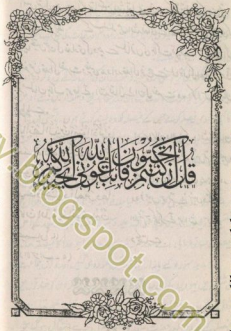 قل ان كنتم تحبون الله فاتبعوني يحببكم الله
blogspot.com